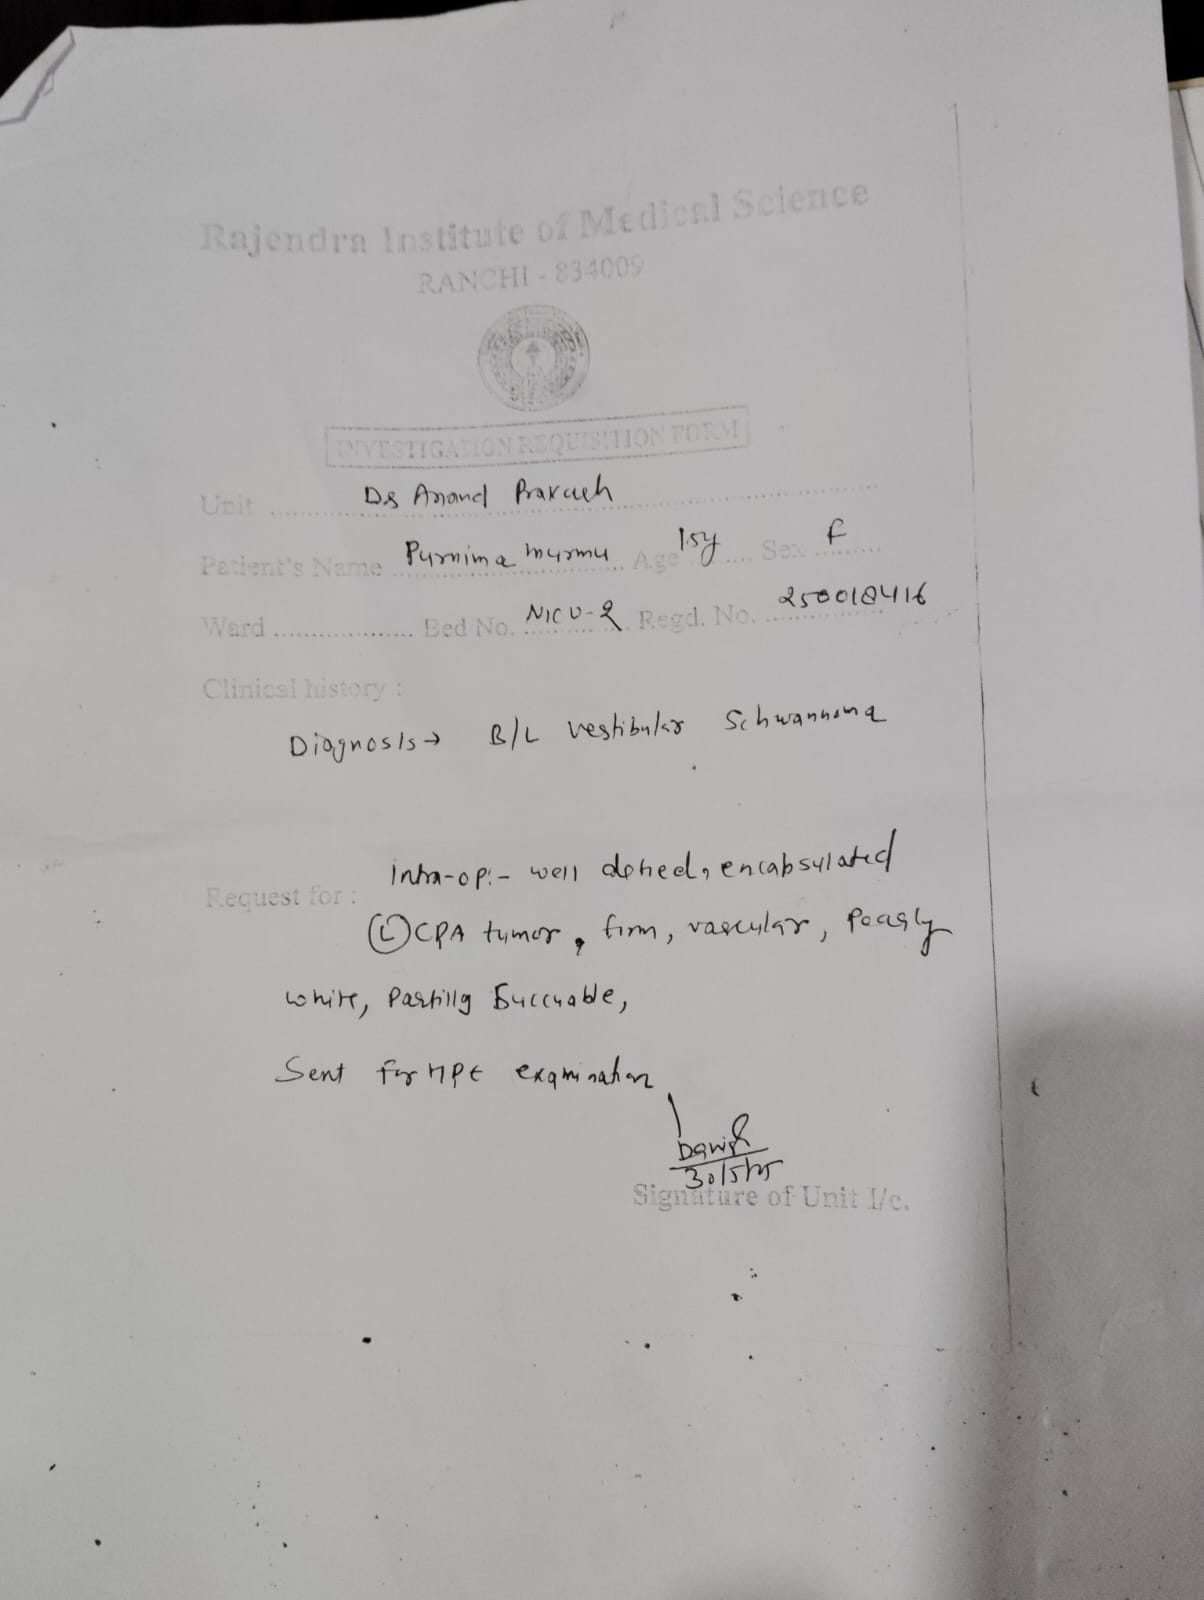 Rajendra Institute of Medical Science
RANCHI - 834009
INVESTIGATION REQUISITION FORM
Unit ........ Dr Anand Prakash
Patient's Name Purnima murmu Age 15y Sex F
Ward ........ Bed No. NICU-2 Regd. No. 250018416
Clinical history :
Diagnosis → B/L vestibular Schwannoma
Intra-op:- well defined, encapsulated
Request for :
(L) CPA tumor, firm, vascular, Pearly
white, Partilly Succuable,
Sent for HPE examination
Danish
30/5/25
Signature of Unit I/c.